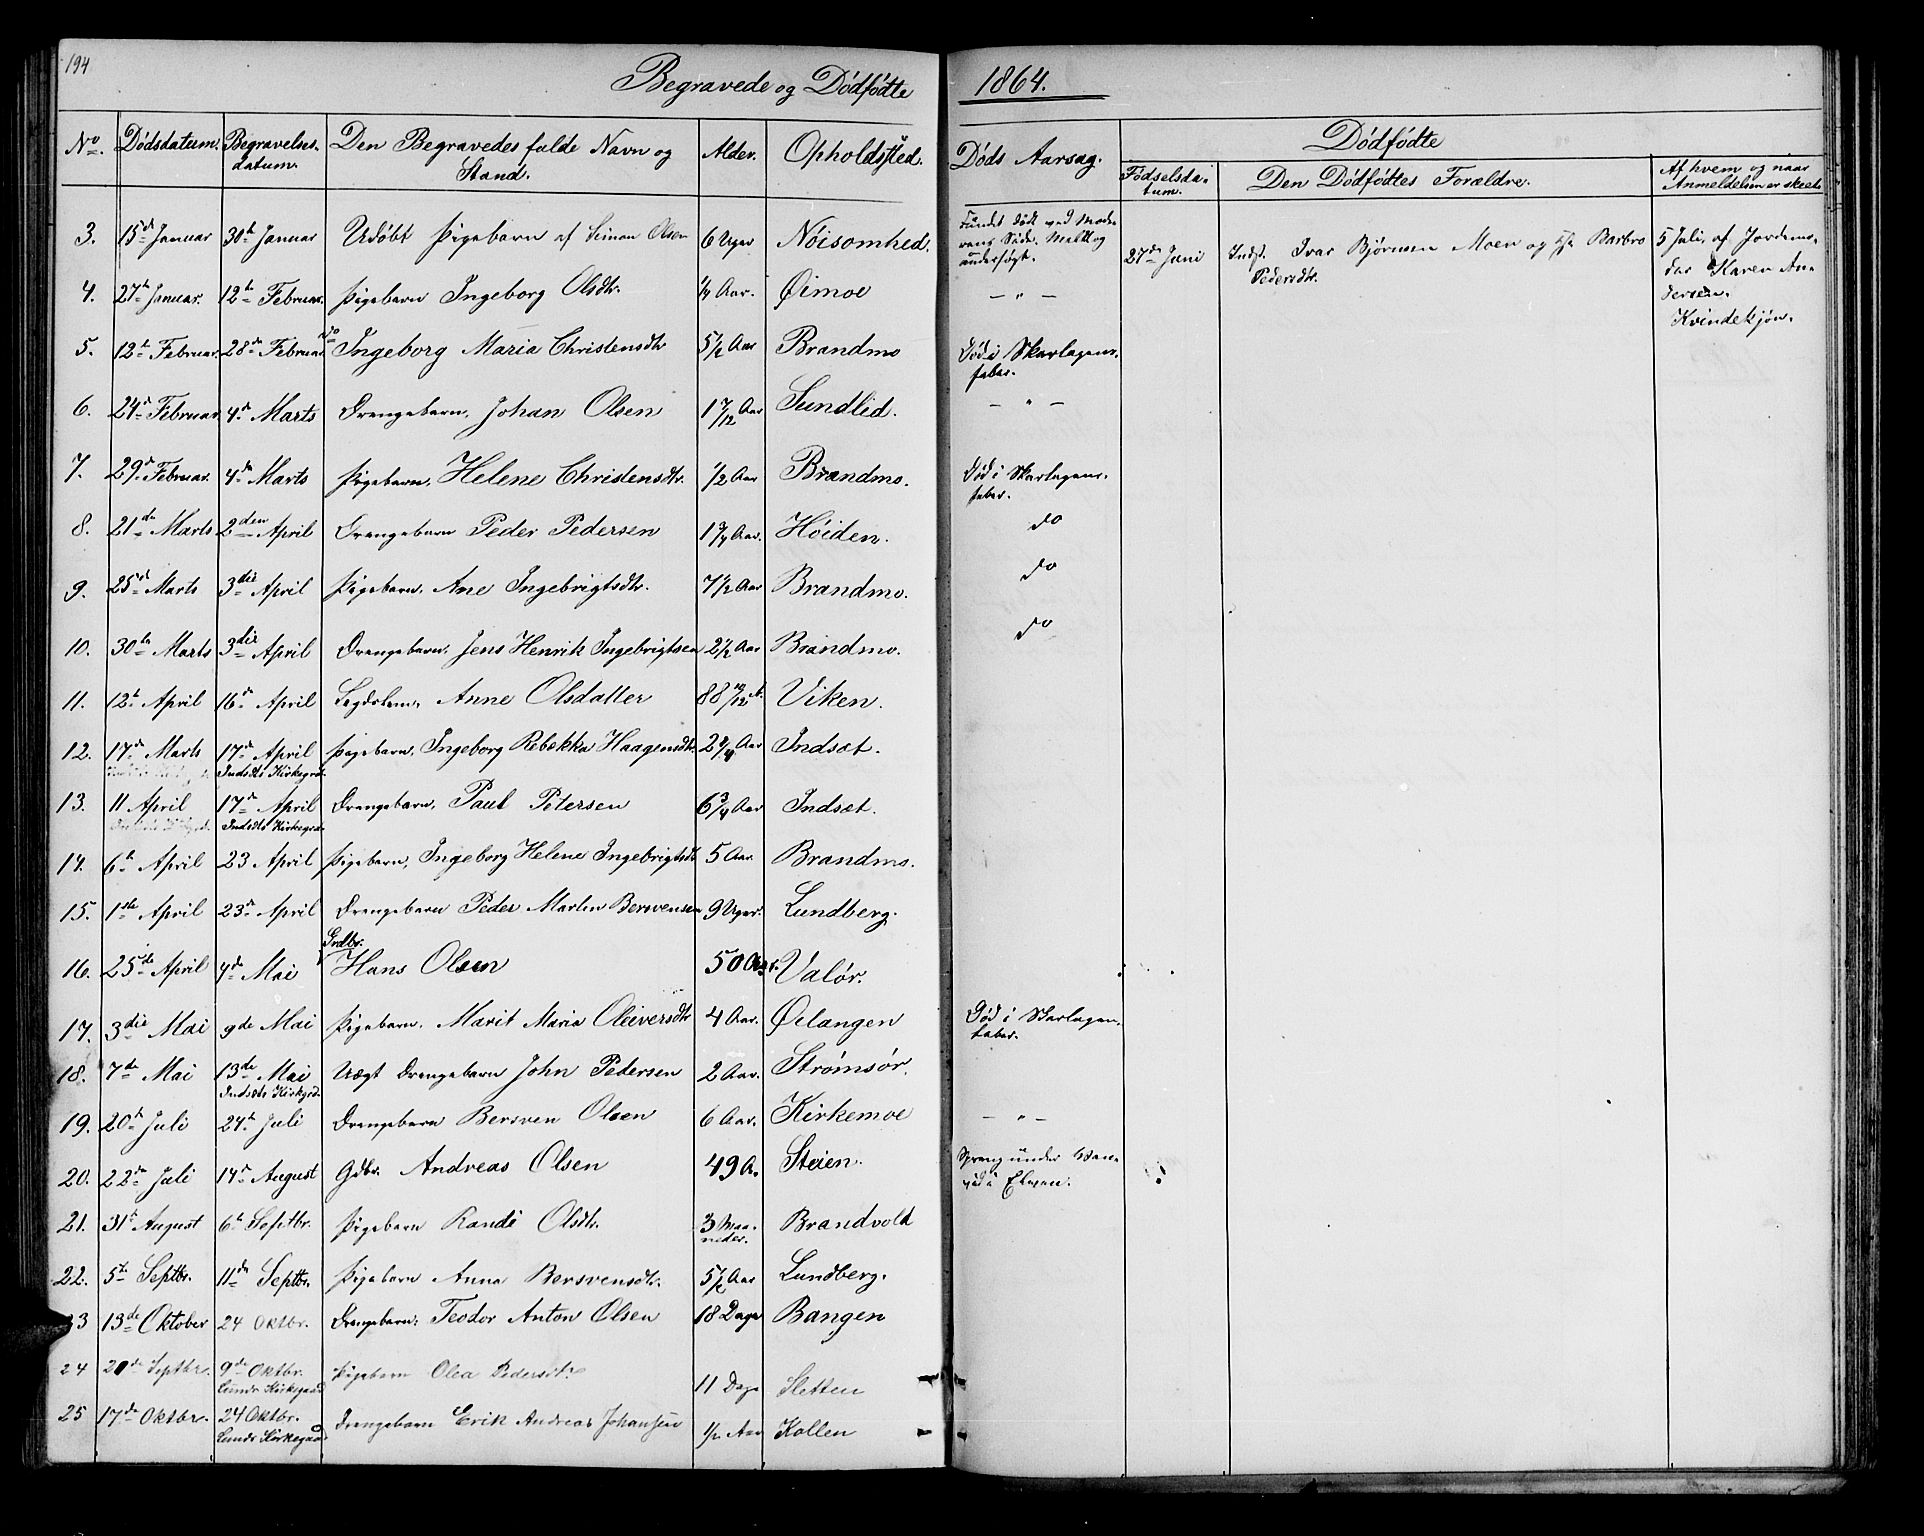 194
Begravede og Dödfödte 1864.
No. Dödsdatum. Begravelses- datum. Den Begravedes fulde Navn og Stand. Alder. Opholdssted. Döds Aarsag. Dödfödte
Födselsda- tum. Den Dödfödtes Forældre. Af hvem og naar Anmeldelsen er skeet.
3. 15de Januar 30te Januar Udöbt Pigebarn af Simon Olsen 6 Uger Nöisomhed. Fundet död ved Mode- rens Side. Meldt og undersögt.
27de Juni Inds. Ivar Björnsen Moen og Barbro Pedersdtr. 5 Juli, af Jordemo- der Karen An- dersen. Kvindekjön.
4. 27de Januar. 12te Februar. Pigebarn Ingeborg Olsdtr. 1/4 Aar. Öimoe — " —
5. 12te Februar. 28de Februar do Ingeborg Maria Christensdtr 5 1/2 Aar Brandmo Död i Skarlagens- feber.
6. 24de Februar. 4de Marts Drengebarn, Johan Olsen 1 7/12 Aar Sundlid. — " —
7. 29de Februar. 4de Marts Pigebarn, Helene Christensdtr. 1/2 Aar Brandmo. Död i Skarlagens- feber.
8. 21de Marts 2den April Drengebarn Peder Pedersen 1 3/4 Aar. Höiden. do
9. 25de Marts 3die April Pigebarn, Ane Ingebrigtsdtr. 7 1/2 Aar Brandmo. do
10. 30te Marts 3die April Drengebarn, Jens Henrik Ingebrigtsen 2 1/2 Aar Brandmo. do
11. 12te April 16de April Lægdslem, Anne Olsdatter 88 10/12 A. Viken.
12. 17de Marts 17de April Indsets Kirkegrd. Pigebarn, Ingeborg Rebekka Haagensdtr. 2 3/4 Aar Indset.
13. 11 April 17de April Indsets Kirkegrd. Drengebarn, Paul Petersen 6 3/4 Aar Indset.
14. 6te April 23 April Pigebarn, Ingeborg Helene Ingebrigtsdtr 5 Aar. Brandmo.
15. 1ste April 23de April Drengebarn Peder Martin Bersvensen 9 Uger. Lundberg.
16. 25de April 4de Mai Grdbr. Hans Olsen 50 Aar. Valör.
17. 3die Mai 9de Mai Pigebarn, Marit Maria Oleiversdtr 4 Aar. Örlangen Död i Skarlagen- feber.
18. 7de Mai 13de Mai Indsets Kirkegrd. Uægt Drengebarn John Pedersen 2 Aar. Strömsör.
19. 20te Juli 24te Juli Drengebarn Bersven Olsen 6 Aar. Kirkemoe — " —
20. 22de Juli 14de August Gdbr. Andreas Olsen 49 A. Steien. Sprang under Van- vid i Elven.
21. 31te August 6te Septbr. Pigebarn Randi Olsdtr. 3 Maa- neder. Brandvold
22. 5te Septbr. 11de Septbr. Pigebarn Anna Bersvensdtr. 5 1/2 Aar Lundberg.
23 13de Oktober 24 Oktbr. Drengebarn: Teodor Anton Olsen 18 Dage Bangen
24 20de Septbr. 9de Oktbr. Lunds Kirkegaard Pigebarn Olea Pedersdtr. 11 Dage Sletten
25 17de Oktbr. 24 Oktbr. Lunds Kirkegaard Drengebarn Erik Andreas Johansen 1/2 Aar Kollen